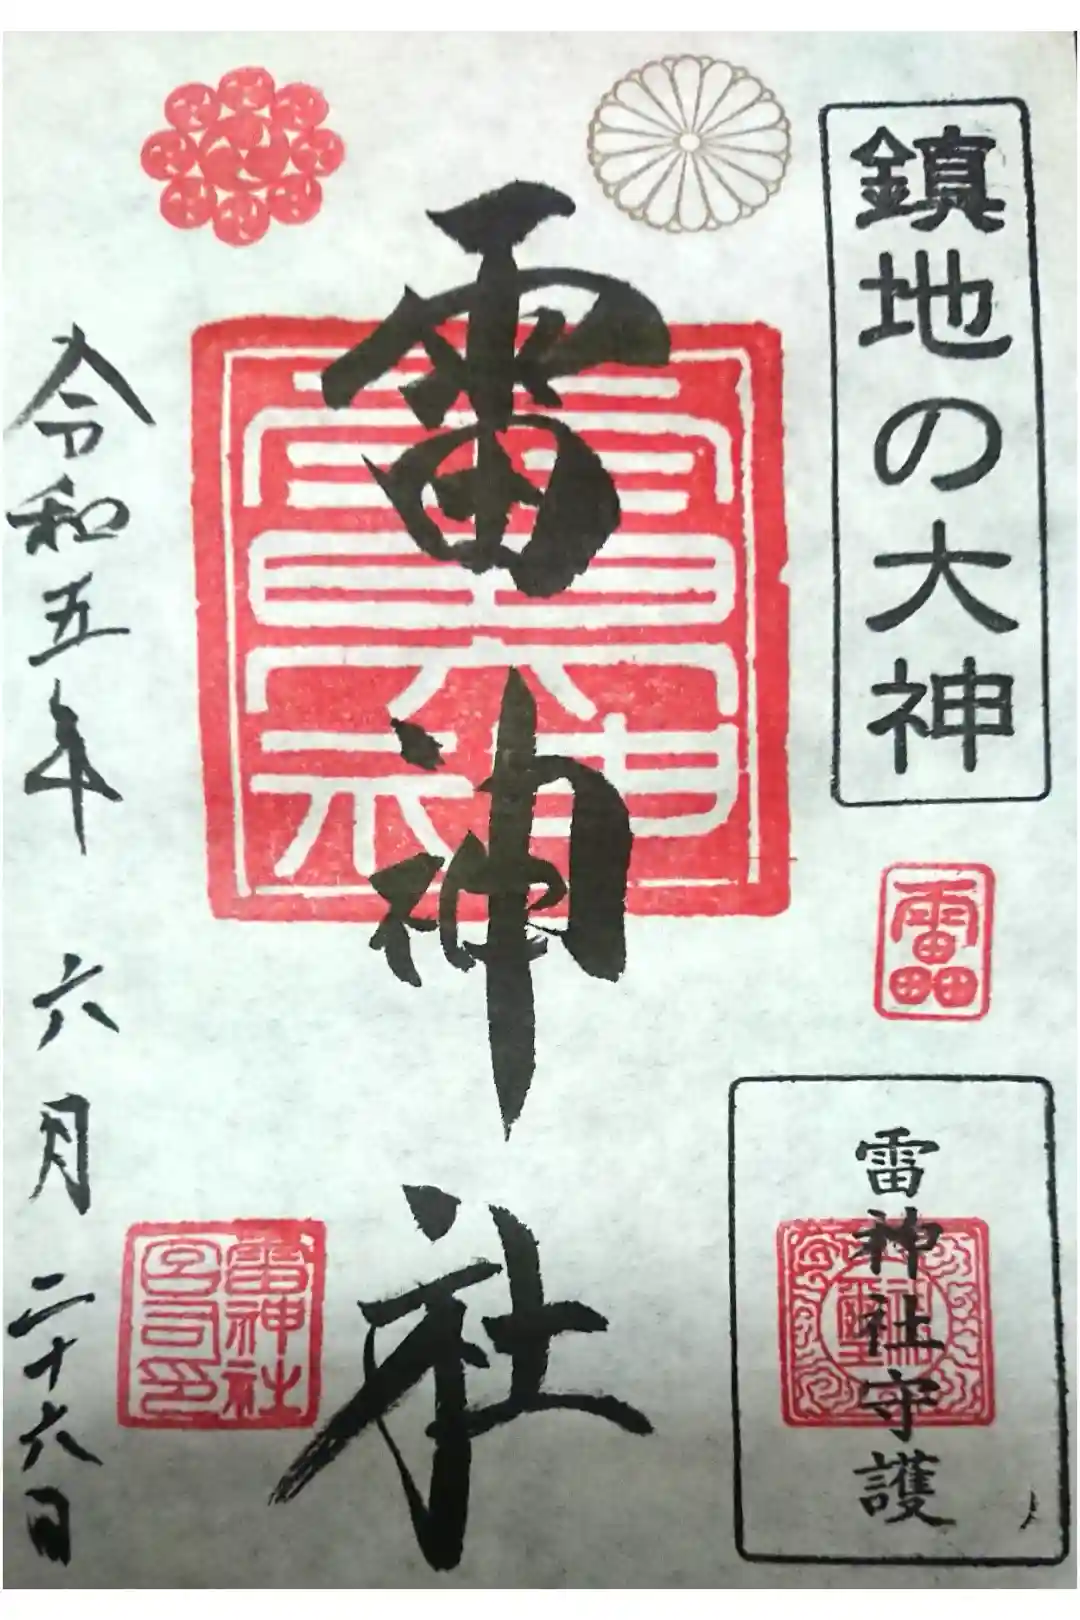 鎮地の大神
雷神社守護
雷神社
雷神社
宮司印
令和五年 六月 二十六日